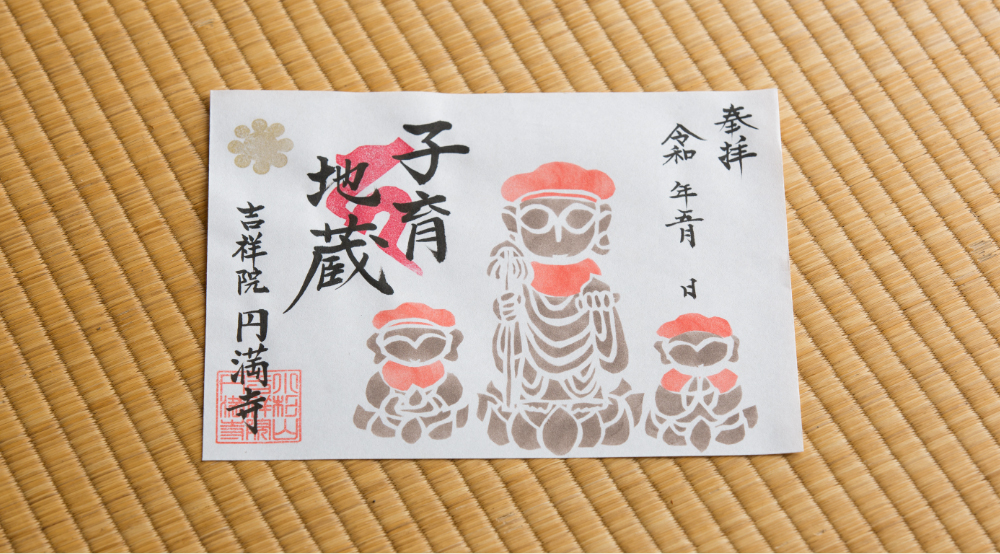 奉拝
令和 年五月 日
子育
地蔵
吉祥院 円満寺